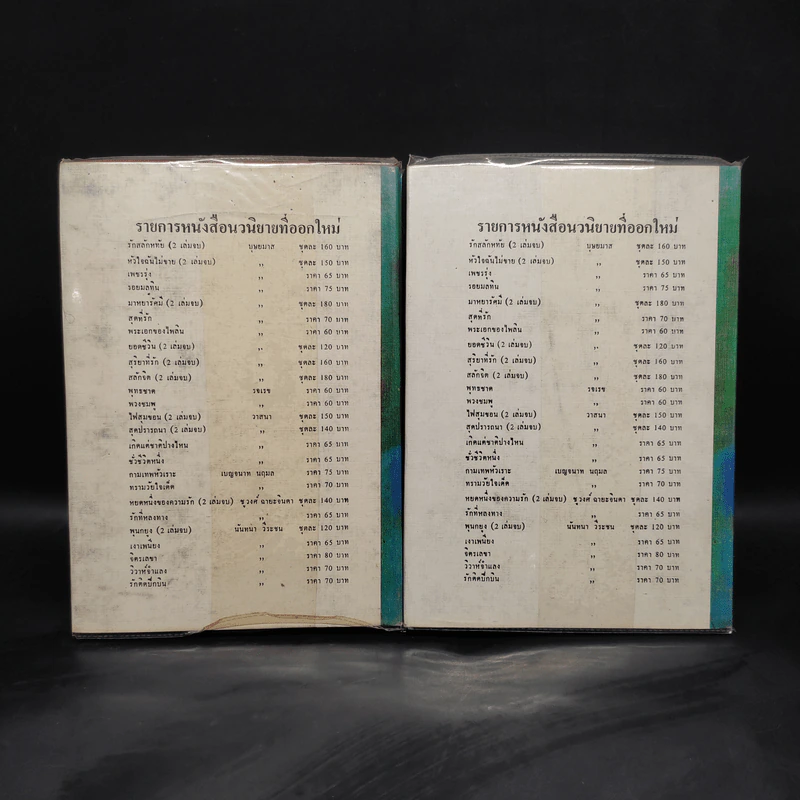 รายการหนังสือนวนิยายที่ออกใหม่
รักสลักหทัย (2 เล่มจบ) บุษยมาส ชุดละ 160 บาท
หัวใจฉันไม่ขาย (2 เล่มจบ) ,, ชุดละ 150 บาท
เพชรรุ่ง ,, ราคา 65 บาท
รอยมลทิน ,, ราคา 75 บาท
มาหยารัศมี (2 เล่มจบ) ,, ชุดละ 180 บาท
สุดที่รัก ,, ราคา 70 บาท
พระเอกของไพลิน ,, ราคา 60 บาท
ยอดชีวิน (2 เล่มจบ) ,, ชุดละ 120 บาท
สุริยาที่รัก (2 เล่มจบ) ,, ชุดละ 160 บาท
สลักจิต (2 เล่มจบ) ,, ชุดละ 180 บาท
พุทธชาด รจเรข ราคา 60 บาท
พวงชมพู ,, ราคา 60 บาท
ไฟสุมขอน (2 เล่มจบ) วาสนา ชุดละ 150 บาท
สุดปรารถนา (2 เล่มจบ) ,, ชุดละ 140 บาท
เกิดแต่ชาติปางไหน ,, ราคา 65 บาท
ชั่วชีวิตหนึ่ง ,, ราคา 65 บาท
กามเทพหัวเราะ เบญจนาท นฤมล ราคา 75 บาท
ทรามวัยใจเด็ด ,, ราคา 70 บาท
หยดหนึ่งของความรัก (2 เล่มจบ) ชูวงศ์ ฉายะจินดา ชุดละ 140 บาท
รักที่หลงทาง ,, ราคา 65 บาท
พุน (2 เล่มจบ) นันทนา วีระชน ชุดละ 120 บาท
เงาเพนียง ,, ราคา 65 บาท
จิตรเลขา ,, ราคา 80 บาท
วิวาห์จำแลง ,, ราคา 70 บาท
รักติดปีกบิน ,, ราคา 70 บาท
รายการหนังสือนวนิยายที่ออกใหม่
รักสลักหทัย (2 เล่มจบ) บุษยมาส ชุดละ 160 บาท
หัวใจฉันไม่ขาย (2 เล่มจบ) ,, ชุดละ 150 บาท
เพชรรุ่ง ,, ราคา 65 บาท
รอยมลทิน ,, ราคา 75 บาท
มาหยารัศมี (2 เล่มจบ) ,, ชุดละ 180 บาท
สุดที่รัก ,, ราคา 70 บาท
พระเอกของไพลิน ,, ราคา 60 บาท
ยอดชีวิน (2 เล่มจบ) ,, ชุดละ 120 บาท
สุริยาที่รัก (2 เล่มจบ) ,, ชุดละ 160 บาท
สลักจิต (2 เล่มจบ) ,, ชุดละ 180 บาท
พุทธชาด รจเรข ราคา 60 บาท
พวงชมพู ,, ราคา 60 บาท
ไฟสุมขอน (2 เล่มจบ) วาสนา ชุดละ 150 บาท
สุดปรารถนา (2 เล่มจบ) ,, ชุดละ 140 บาท
เกิดแต่ชาติปางไหน ,, ราคา 65 บาท
ชั่วชีวิตหนึ่ง ,, ราคา 65 บาท
กามเทพหัวเราะ เบญจนาท นฤมล ราคา 75 บาท
ทรามวัยใจเด็ด ,, ราคา 70 บาท
หยดหนึ่งของความรัก (2 เล่มจบ) ชูวงศ์ ฉายะจินดา ชุดละ 140 บาท
รักที่หลงทาง ,, ราคา 65 บาท
(2 เล่มจบ) นันทนา วีระชน ชุดละ 120 บาท
เงาเพนียง ,, ราคา 65 บาท
จิตรเลขา ,, ราคา 80 บาท
วิวาห์จำแลง ,, ราคา 70 บาท
รักติดปีกบิน ,, ราคา 70 บาท